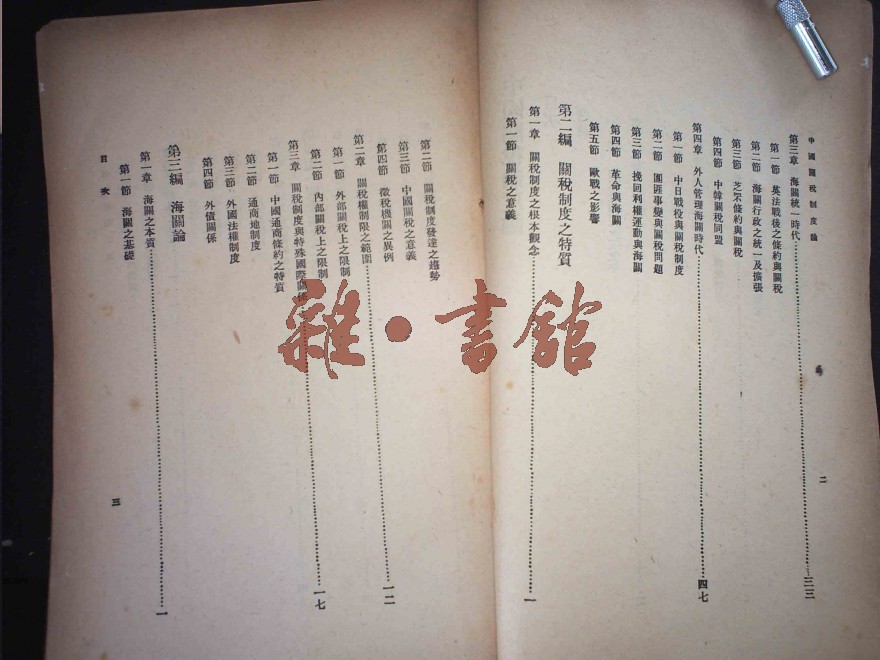 中國關稅制度論
第三章 海關統一時代……三三
第一節 英法戰後之條約與關稅
第二節 海關行政之統一及擴張
第三節 芝罘條約與關稅
第四節 中韓關稅同盟
第四章 外人管理海關時代……四七
第一節 中日戰役與關稅制度
第二節 團匪事變與關稅問題
第三節 挽回利權運動與海關
第四節 革命與海關
第五節 歐戰之影響
第二編 關稅制度之特質
第一章 關稅制度之根本觀念……一
第一節 關稅之意義
二
第二節 關稅制度發達之趨勢
第三節 中國關稅之意義
第四節 徵稅機關之異例
第二章 關稅權制限之範圍……一二
第一節 外部關稅上之限制
第二節 內部關稅上之限制
第三章 關稅制度與特殊國際關係……一七
第一節 中國通商條約之特質
第二節 通商地制度
第三節 外國法權制度
第四節 外債關係
第三編 海關論
第一章 海關之本質……一
第一節 海關之基礎
目次
三
雜·書館